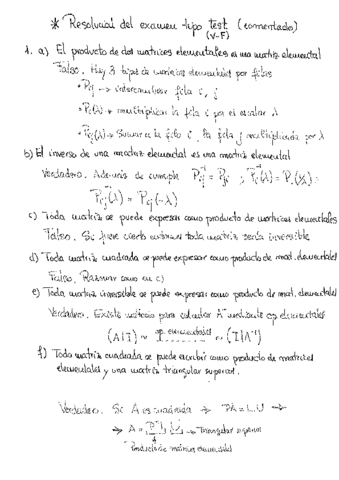 * Resolución del examen tipo test (comentado)
(V-F)
1. a) El producto de dos matrices elementales es una matriz elemental
Falso. Hay 3 tipos de matrices elementales por filas
• Pij → intercambiar fila i, j
• Pi(λ) → multiplicar la fila i por el escalar λ
• Pij(λ) → Sumar a la fila i, la fila j multiplicada por λ
b) El inverso de una matriz elemental es una matriz elemental
Verdadero. Además se cumple Pij⁻¹ = Pji ; Pi⁻¹(λ) = Pi(1/λ);
Pij⁻¹(λ) = Pij(-λ)
c) Toda matriz se puede expresar como producto de matrices elementales
Falso. Si fuese cierto entonces toda matriz sería invertible
d) Toda matriz cuadrada se puede expresar como producto de mat. elementales
Falso. Razonar como en c)
e) Toda matriz invertible se puede expresar como producto de mat. elementales
Verdadero. Existe método para calcular A⁻¹ mediante op elementales
(A|I) ~ op. elementales ~ (I|A⁻¹)
f) Toda matriz cuadrada se puede escribir como producto de matrices
elementales y una matriz triangular superior.
Verdadero. Si A es cuadrada → PA = L.U →
→ A = P⁻¹ L U → Triangular superior
Producto de matrices elementales